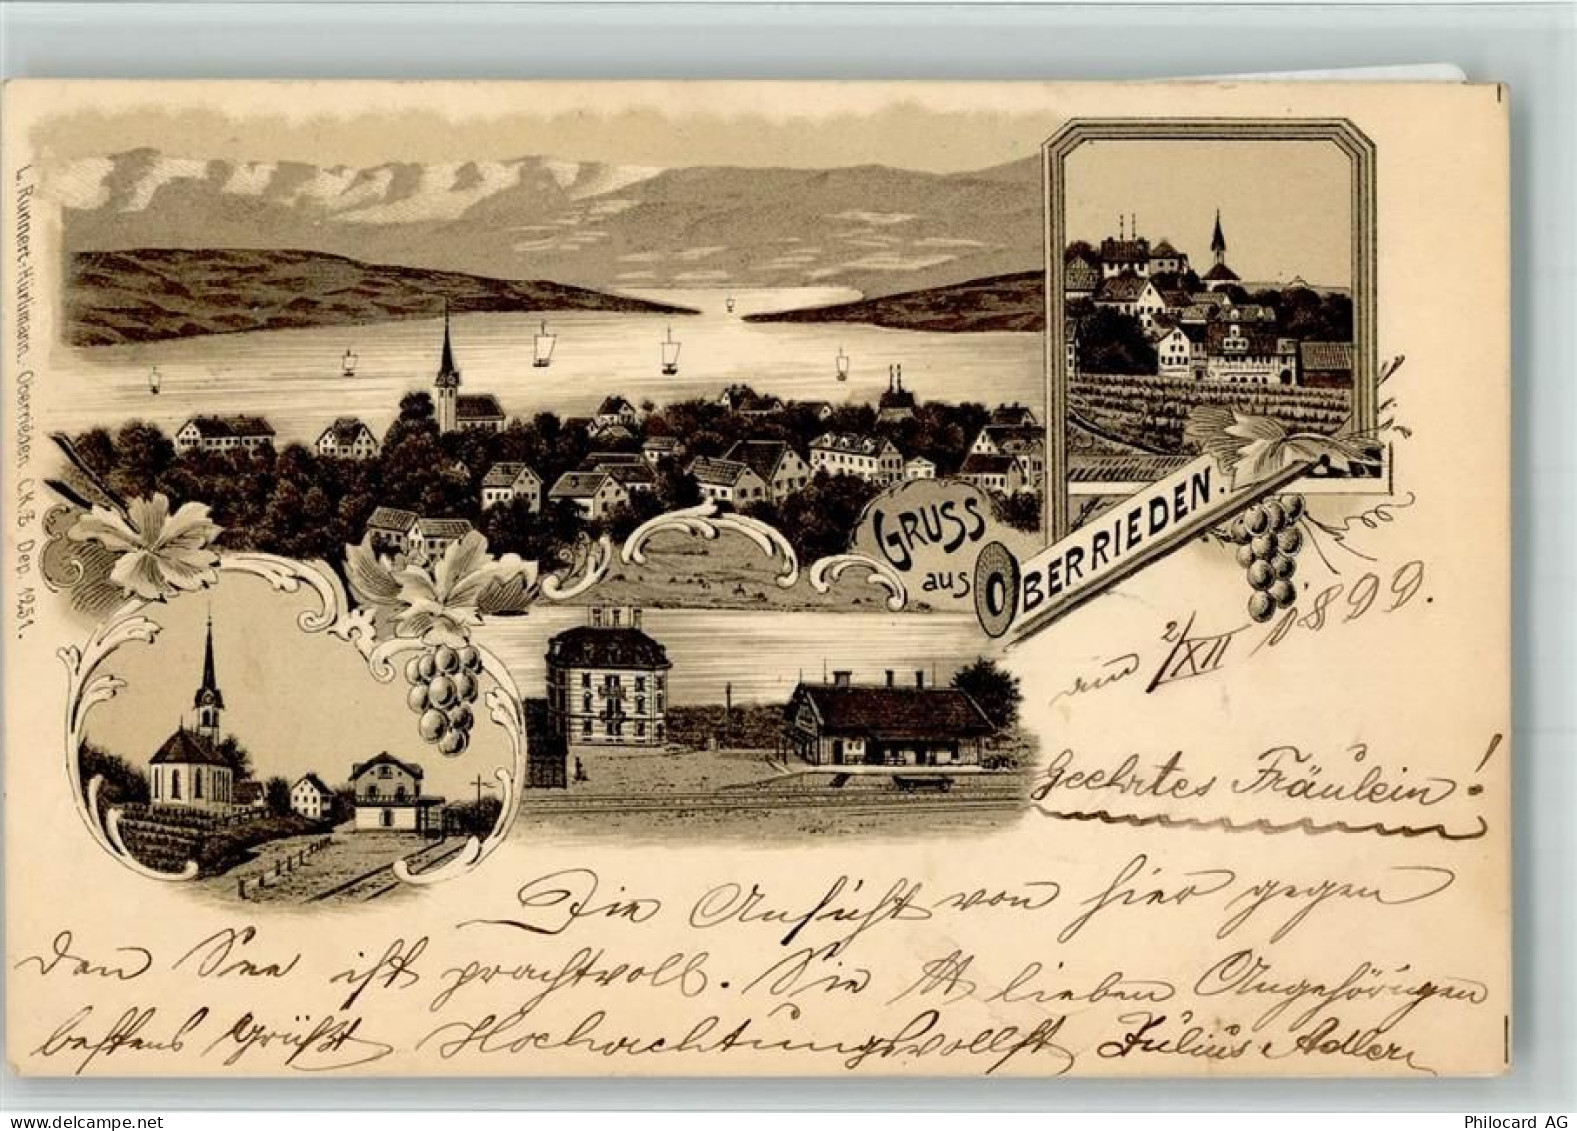 L. Runnert-Hürlimann, Oberrieden. C.K.Z. Dep. 1251.
GRUSS
aus OBERRIEDEN.
am 2/XII 1899.
Geehrtes Fräulein!
Die Ansicht von hier gegen
den See ist prachtvoll. Sie & lieben Angehörigen
bestens grüßt Hochachtungsvollst Julius Adler
hip-post.com
Philocard AG